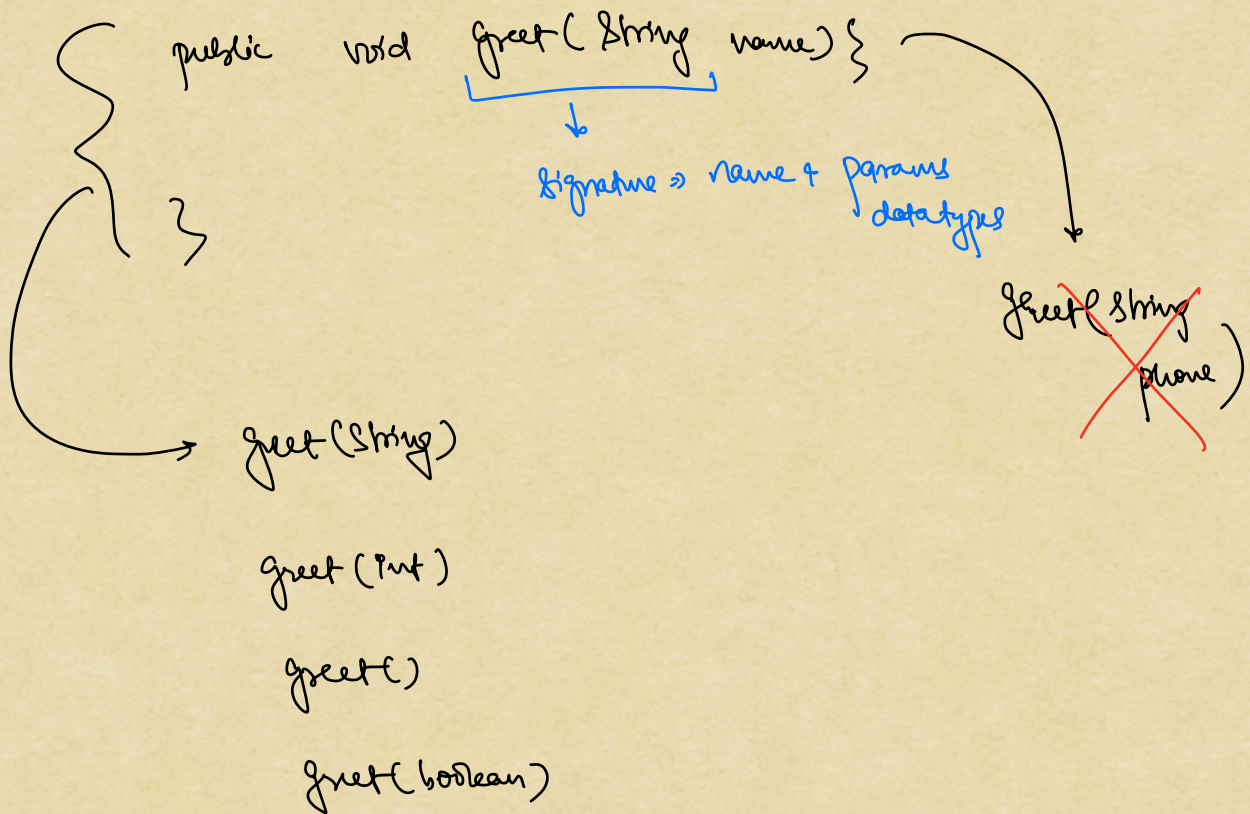 public void greet(String name) {
signature => name + params
datatypes
}
greet(String
phone)
greet(String)
greet(int)
greet()
greet(boolean)